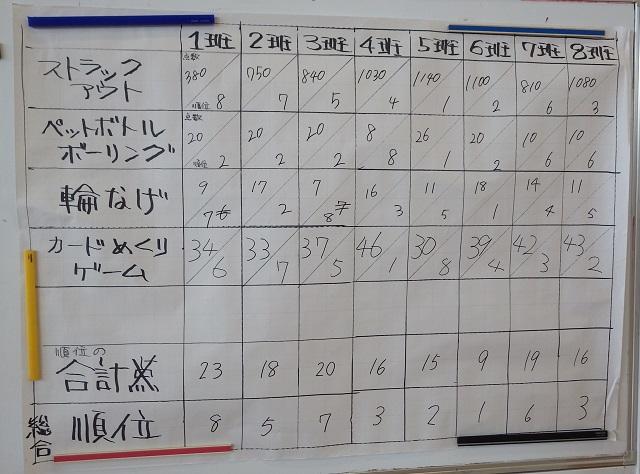 1班 2班 3班 4班 5班 6班 7班 8班
ストラックアウト 点数 380 750 840 1030 1140 1100 810 1080
順位 8 7 5 4 1 2 6 3
ペットボトルボーリング 点数 20 20 20 8 26 20 10 10
順位 2 2 2 8 1 2 6 6
輪なげ 9 17 7 16 11 18 14 11
7 2 8 3 5 1 4 5
カードめくりゲーム 34 33 37 46 30 39 42 43
6 7 5 1 8 4 3 2
順位の
合計 23 18 20 16 15 9 19 16
総合 順位 8 5 7 3 2 1 6 3